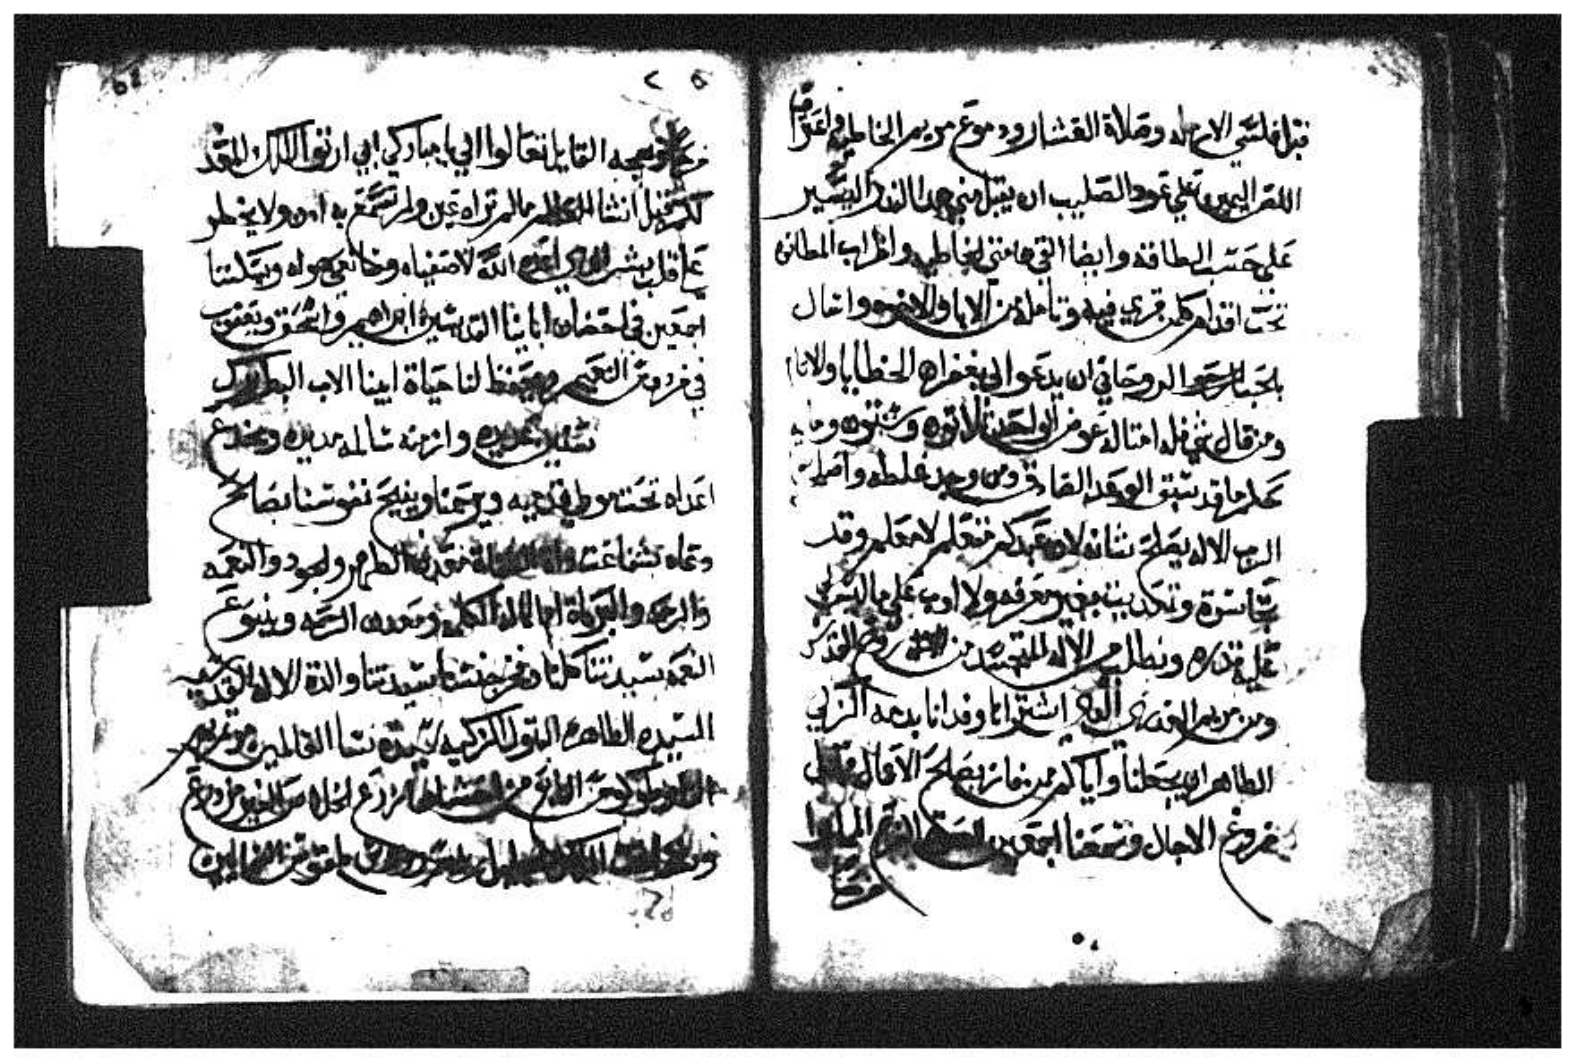 قبل فلسي الارمله وصلاة العشار ودموع مريم الخاطيه واعتراف
اللص اليمين علي عود الصليب ان يقبل مني هدا النذر اليسير
علي حسب الطاقه وايضا القي هامتي الخاطيه واضراب المطانوه
تحت اقدام كلمن قري فيه وتامله من الابا والاخوه واسال
بالمحبه الروحاني ان يدعوا لي بغفران الخطايا والاتام
ومن قال شي فله امتاله عوض الواحد تلاتون وستون ومايه
كما قد سبق الوعد الصادق ومن وجد غلطه واصلح
الرب الاله يصلح شانه لان عبدكم متعلم لا معلم وقد
تجاسرت وتعديت بغير معرفه ولا ادب علي ما ليس لي
عليه قدره ونطلب من الاله المتجسد من روح القدس
ومن مريم العدري الدي اشترانا وفدانا بدمه الزكي
الطاهر ان يجعلنا واياكم ممن فاز بصالح الاعمال قبل
فروغ الاجال ويسمعنا اجمعين الصوت الفرح المملوا
فرحا
فرحا وبهجه القايل تعالوا الي يا مباركي ابي ارتوا الملك المعد
لكم من قبل انشا العالم ما لم تراه عين ولم تسمع به ادن ولا يخطر
علي قلب بشر الدي اعده الله لاصفياه وخايفي هواه ويتكلنا
اجمعين في احضان ابابنا القديسين ابراهيم واسحق ويعقوب
في فردوس النعيم ويحفظ لنا حياة ابينا الاب البطريرك
سنين عديده وازمنه سالمه مديده ويخضع
اعداه تحت موطي قدميه ويرحمنا وينيح نفوسنا بصالح
دعاه بشفاعت معدن الطهر والجود والنعمه
والرحمه والبركات ام الاله الكلمه ومعدن الرحمه وينبوع
النعمه سيدتنا كلنا وفخر جنسنا سيدتنا والدة الاله القديسه
السيده الطاهره البتول الزكيه سيدة نسا العالمين مرتمريم